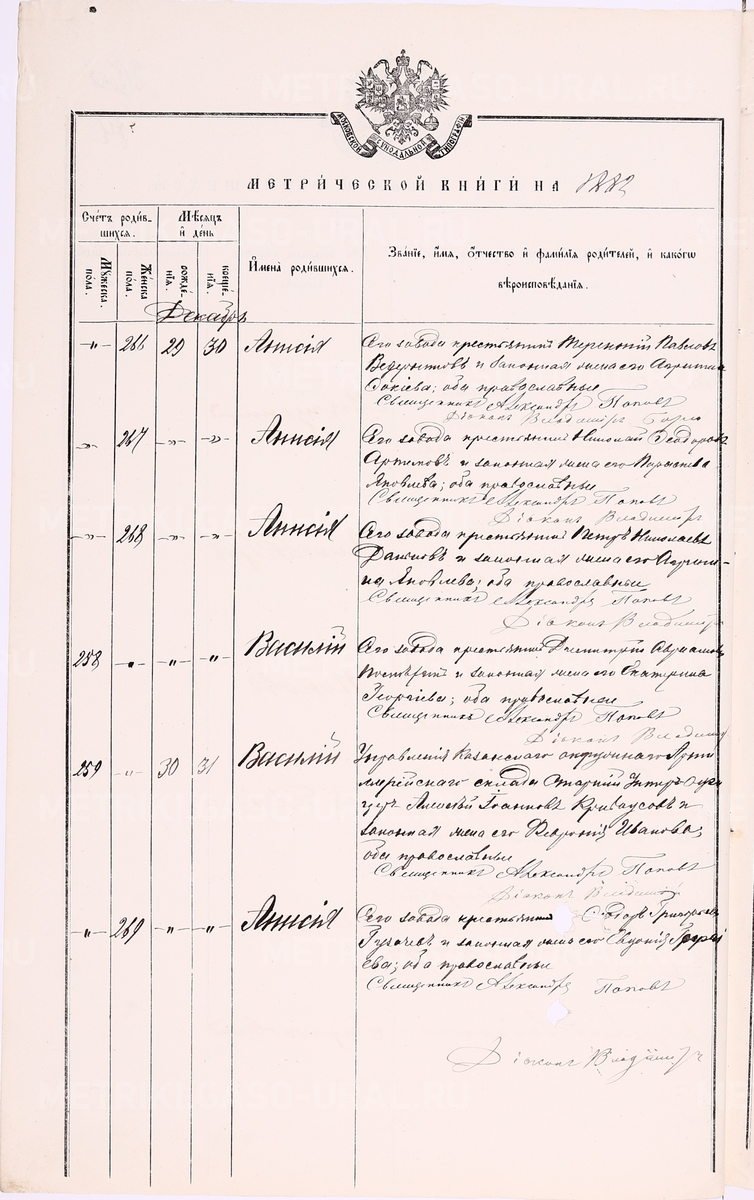 МОСКОВСКОЙ СѴНОДАЛЬНОЙ ТИПОГРАФІИ
МЕТРИ́ЧЕСКОЙ КНИ́ГИ НА 1882
Сче́тъ роди́вшихся.
Мѣ́сяцъ и́ де́нь
И́мена̀ роди́вшихся.
Зва́ніе, и́мя, о́тчество и́ фами́лія роди́телей, и́ како́гѡ
вѣроисповѣ́данія.
Му́жеска по́ла.
Же́нска по́ла.
рожде́нія.
креще́нія.
Декабрь
-"- 266 29 30 Анисія
Сего завода крестьянинъ Терентій Павловъ
и законная жена его
; оба православные
Священникъ Александръ Поповъ
Діаконъ Владиміръ
-"- 267 -"- -"- Анисія
Сего завода крестьянинъ Николай Ѳеодоровъ
Артемовъ и законная жена его
Яковлева; оба православные
Священникъ Александръ Поповъ
Діаконъ Владиміръ
-"- 268 -"- -"- Анисія
Сего завода крестьянинъ Петръ Николаевъ
и законная жена его Агрипи-
на Яковлева; оба православные
Священникъ Александръ Поповъ
Діаконъ Владиміръ
258 -"- -"- -"- Василій
Сего завода крестьянинъ Димитрій
и законная жена его Екатерина
Георгіева; оба православные
Священникъ Александръ Поповъ
Діаконъ Владиміръ
259 -"- 30 31 Василій
Управленія Казанскаго окружнаго Арти
лерійскаго склада Старшій Унтеръ-Офи
церъ Алексѣй Іоанновъ и
законная жена его Февронія Иванова;
оба православные
Священникъ Александръ Поповъ
Діаконъ Владиміръ
-"- 269 -"- -"- Анисія
Сего завода крестьянинъ Григорьевъ
и законная жена его Евдокія
ева; оба православные
Священникъ Александръ Поповъ
Діаконъ Владиміръ
METRIKI.GASO-URAL.RU